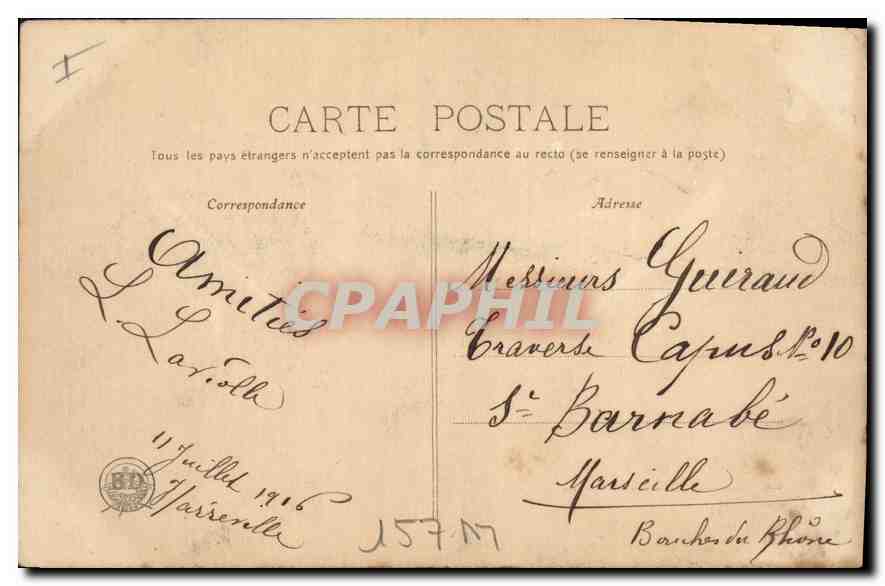 I
CARTE POSTALE
Tous les pays étrangers n'acceptent pas la correspondance au recto (se renseigner à la poste)
Correspondance
Amitiés
L. Laviolle
11 Juillet 1916
BD
157 M
Adresse
Messieurs Guiraud
Traverse Capus No 10
St Barnabé
Marseille
Bouches du Rhône
CPAPHIL